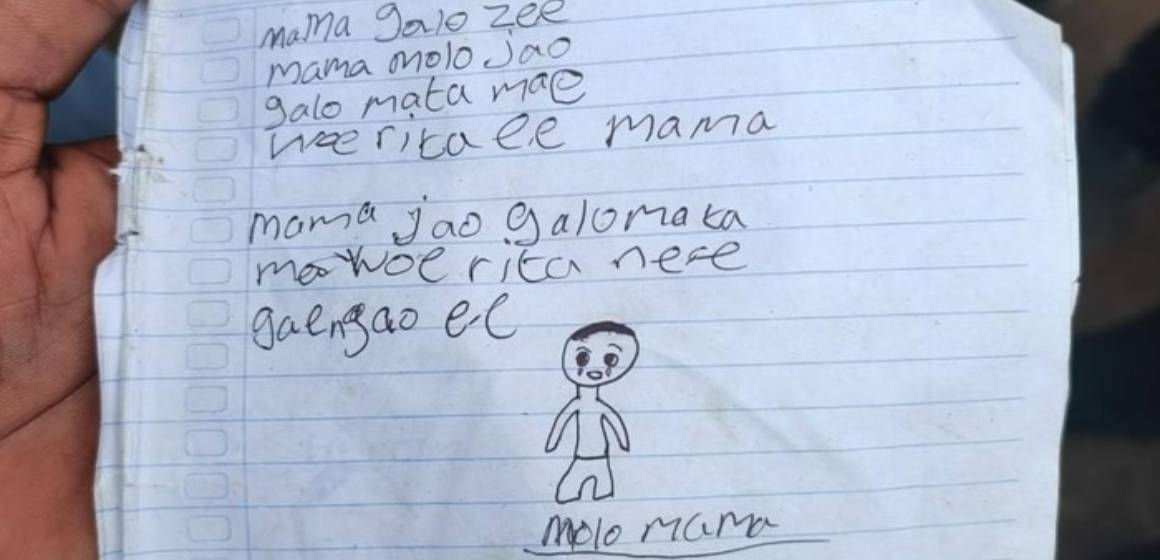 mama galo zee
mama molo jao
galo mata mae
woe rita e.e mama
mama jao galo mata
mae woe rita ne-e
gaengao e-e
molo mama